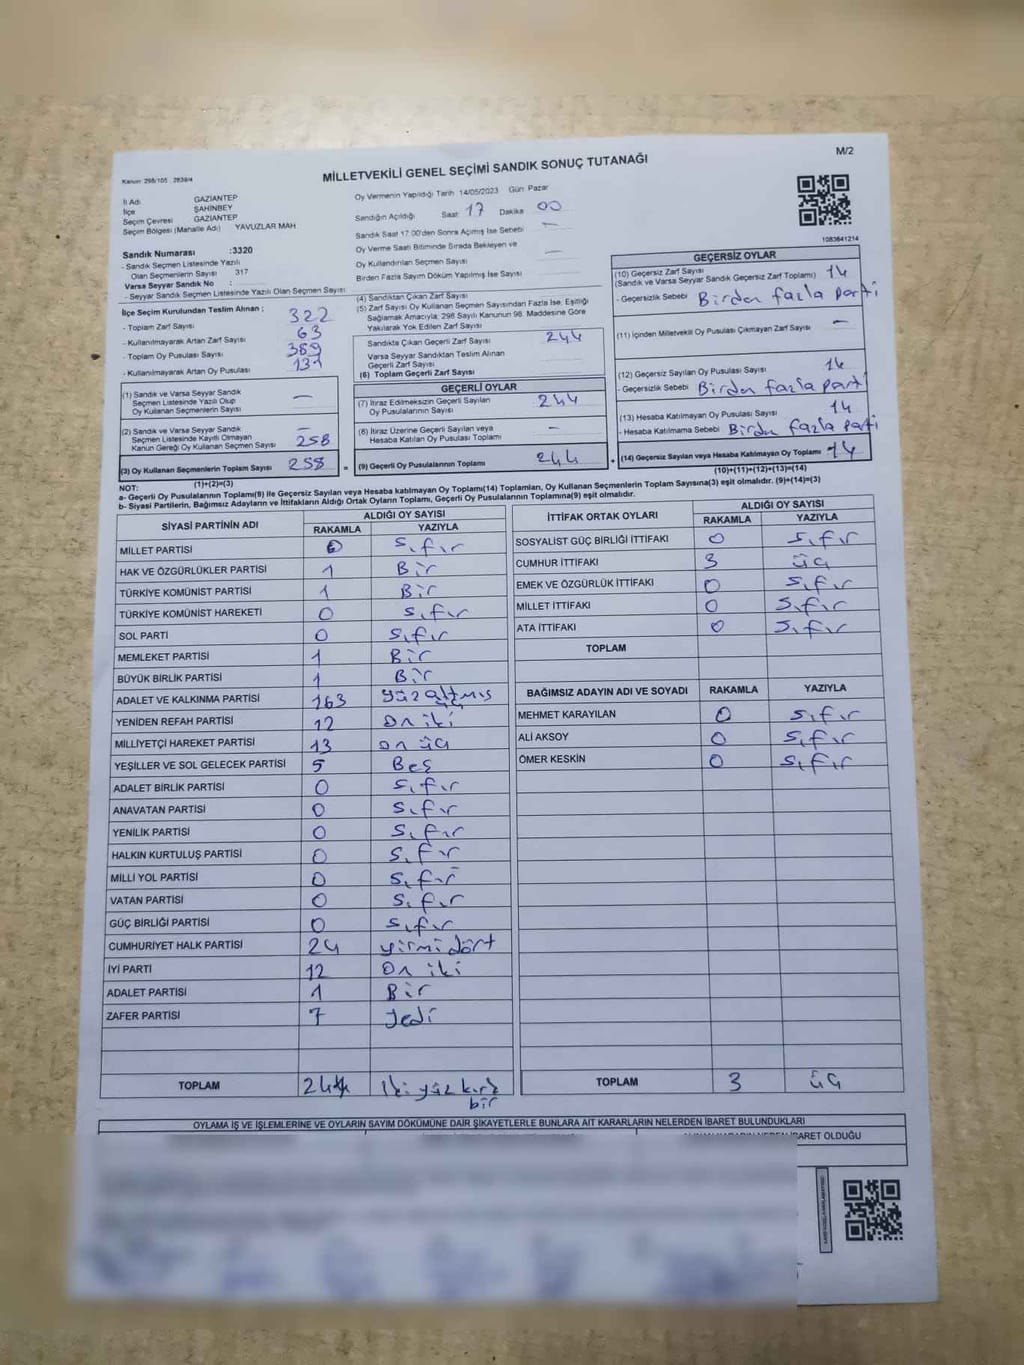 M/2
Kanun: 298/105 2839/4
MİLLETVEKİLİ GENEL SEÇİMİ SANDIK SONUÇ TUTANAĞI
İl Adı GAZİANTEP
İlçe ŞAHİNBEY
Seçim Çevresi GAZİANTEP
Seçim Bölgesi (Mahalle Adı) YAVUZLAR MAH
Oy Vermenin Yapıldığı Tarih 14/05/2023 Gün Pazar
Sandığın Açıldığı Saat 17 Dakika 00
Sandık Saat 17:00'den Sonra Açılmış İse Sebebi —
Oy Verme Saati Bitiminde Sırada Bekleyen ve
Oy Kullandırılan Seçmen Sayısı —
Birden Fazla Sayım Döküm Yapılmış İse Sayısı —
1083641214
Sandık Numarası :3320
- Sandık Seçmen Listesinde Yazılı
Olan Seçmenlerin Sayısı 317
Varsa Seyyar Sandık No :
- Seyyar Sandık Seçmen Listesinde Yazılı Olan Seçmen Sayısı
İlçe Seçim Kurulundan Teslim Alınan ;
- Toplam Zarf Sayısı 322
- Kullanılmayarak Artan Zarf Sayısı 63
- Toplam Oy Pusulası Sayısı 389
- Kullanılmayarak Artan Oy Pusulası 131
(1) Sandık ve Varsa Seyyar Sandık
Seçmen Listesinde Yazılı Olup
Oy Kullanan Seçmenlerin Sayısı —
(2) Sandık ve Varsa Seyyar Sandık
Seçmen Listesinde Kayıtlı Olmayan
Kanun Gereği Oy Kullanan Seçmen Sayısı — 258
(3) Oy Kullanan Seçmenlerin Toplam Sayısı 258
(1)+(2)=(3)
(4) Sandıktan Çıkan Zarf Sayısı
(5) Zarf Sayısı Oy Kullanan Seçmen Sayısından Fazla İse, Eşitliği
Sağlamak Amacıyla; 298 Sayılı Kanunun 98. Maddesine Göre
Yakılarak Yok Edilen Zarf Sayısı
Sandıkta Çıkan Geçerli Zarf Sayısı 244
Varsa Seyyar Sandıktan Teslim Alınan
Geçerli Zarf Sayısı
(6) Toplam Geçerli Zarf Sayısı
GEÇERLİ OYLAR
(7) İtiraz Edilmeksizin Geçerli Sayılan
Oy Pusulalarının Sayısı 244
(8) İtiraz Üzerine Geçerli Sayılan veya
Hesaba Katılan Oy Pusulası Toplamı —
= (9) Geçerli Oy Pusulalarının Toplamı 244
GEÇERSİZ OYLAR
(10) Geçersiz Zarf Sayısı
(Sandık ve Varsa Seyyar Sandık Geçersiz Zarf Toplamı) 14
- Geçersizlik Sebebi Birden fazla parti
(11) İçinden Milletvekili Oy Pusulası Çıkmayan Zarf Sayısı —
(12) Geçersiz Sayılan Oy Pusulası Sayısı 14
- Geçersizlik Sebebi Birden fazla parti
(13) Hesaba Katılmayan Oy Pusulası Sayısı 14
- Hesaba Katılmama Sebebi Birden fazla parti
+ (14) Geçersiz Sayılan veya Hesaba Katılmayan Oy Toplamı 14
(10)+(11)+(12)+(13)=(14)
NOT:
a- Geçerli Oy Pusulalarının Toplamı(9) ile Geçersiz Sayılan veya Hesaba katılmayan Oy Toplamı(14) Toplamları, Oy Kullanan Seçmenlerin Toplam Sayısına(3) eşit olmalıdır. (9)+(14)=(3)
b- Siyasi Partilerin, Bağımsız Adayların ve İttifakların Aldığı Ortak Oyların Toplamı, Geçerli Oy Pusulalarının Toplamına(9) eşit olmalıdır.
SİYASİ PARTİNİN ADI ALDIĞI OY SAYISI
RAKAMLA YAZIYLA
MİLLET PARTİSİ 0 Sıfır
HAK VE ÖZGÜRLÜKLER PARTİSİ 1 Bir
TÜRKİYE KOMÜNİST PARTİSİ 1 Bir
TÜRKİYE KOMÜNİST HAREKETİ 0 Sıfır
SOL PARTİ 0 Sıfır
MEMLEKET PARTİSİ 1 Bir
BÜYÜK BİRLİK PARTİSİ 1 Bir
ADALET VE KALKINMA PARTİSİ 163 Yüz altmış üç
YENİDEN REFAH PARTİSİ 12 On iki
MİLLİYETÇİ HAREKET PARTİSİ 13 on üç
YEŞİLLER VE SOL GELECEK PARTİSİ 5 Beş
ADALET BİRLİK PARTİSİ 0 Sıfır
ANAVATAN PARTİSİ 0 Sıfır
YENİLİK PARTİSİ 0 Sıfır
HALKIN KURTULUŞ PARTİSİ 0 Sıfır
MİLLİ YOL PARTİSİ 0 Sıfır
VATAN PARTİSİ 0 Sıfır
GÜÇ BİRLİĞİ PARTİSİ 0 Sıfır
CUMHURİYET HALK PARTİSİ 24 yirmi dört
İYİ PARTİ 12 On iki
ADALET PARTİSİ 1 Bir
ZAFER PARTİSİ 7 Yedi
TOPLAM İki yüz kırk
bir
İTTİFAK ORTAK OYLARI ALDIĞI OY SAYISI
RAKAMLA YAZIYLA
SOSYALİST GÜÇ BİRLİĞİ İTTİFAKI 0 Sıfır
CUMHUR İTTİFAKI 3 üç
EMEK VE ÖZGÜRLÜK İTTİFAKI 0 Sıfır
MİLLET İTTİFAKI 0 Sıfır
ATA İTTİFAKI 0 Sıfır
TOPLAM
BAĞIMSIZ ADAYIN ADI VE SOYADI RAKAMLA YAZIYLA
MEHMET KARAYILAN 0 Sıfır
ALİ AKSOY 0 Sıfır
ÖMER KESKİN 0 Sıfır
TOPLAM 3 üç
OYLAMA İŞ VE İŞLEMLERİNE VE OYLARIN SAYIM DÖKÜMÜNE DAİR ŞİKAYETLERLE BUNLARA AİT KARARLARIN NELERDEN İBARET BULUNDUKLARI
İBARET OLDUĞU